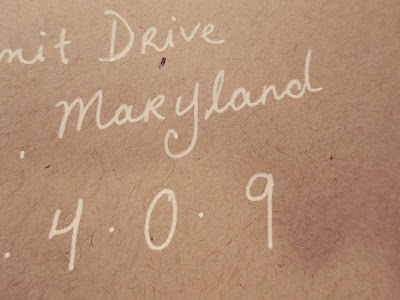 mit Drive
Maryland
. 4 . 0 . 9